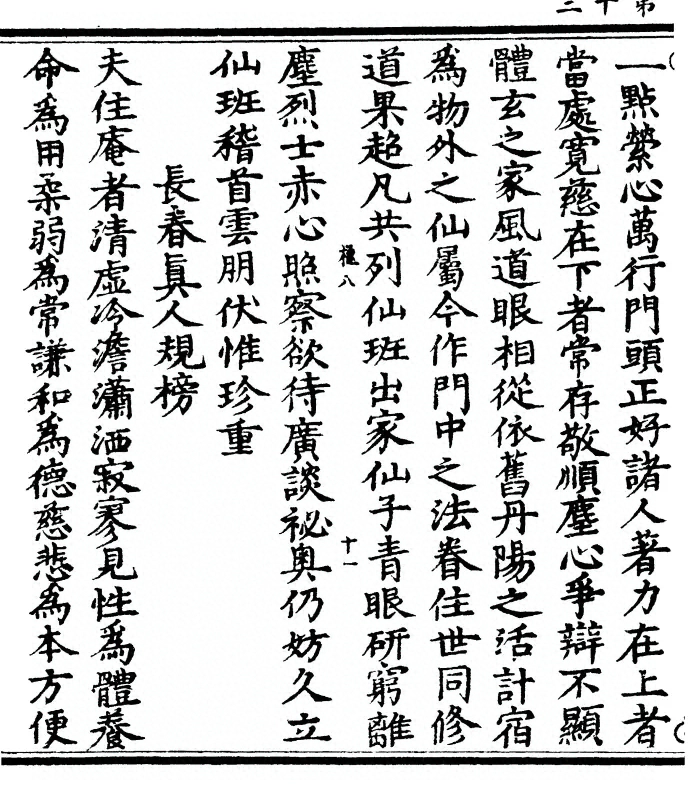 第十三
一點縈心萬行門頭正好諸人著力在上者
當處寬慈在下者常存敬順塵心爭辯不顯
體玄之家風道眼相從依舊丹陽之活計宿
為物外之仙屬今作門中之法眷住世同修
道果超凡共列仙班出家仙子青眼研窮離
塵烈士赤心照察欲待廣談祕奧仍妨久立
仙班稽首雲朋伏惟珍重
長春真人規榜
夫住庵者清虛冷澹瀟洒寂寥見性為體養
命為用柔弱為常謙和為德慈悲為本方便
十一